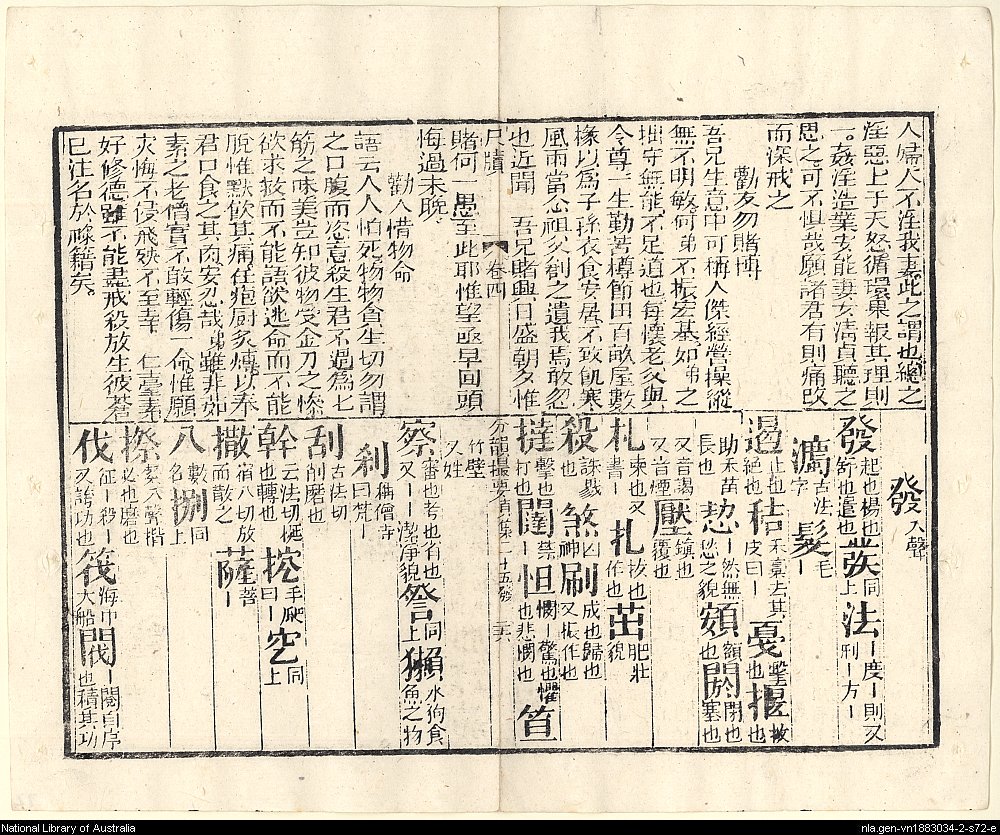 人婦人不淫我妻此之謂也總之
淫惡上于天怒循環果報其理則
一。姦淫造業安能妻女淸貞聽之
思之可不惧哉願諸君有則痛改
而深戒之
勸友勿賭博
吾兄生意中可稱人傑經營操縱
無不明敏何弟不振宏基如弟之
拙守無能不足道也每懷老父與
令尊一生勤苦樽節田百畝屋數
椽以爲子孫衣食安居不致飢寒
風雨當念祖父創之遺我焉敢忽
也近聞 吾兄賭興日盛朝夕惟
尺牘 卷四
賭何一思至此耶惟望亟早回頭
悔過未晚
勸人惜物命
語云人人怕死物物貪生切勿謂
之口腹而恣意殺生君不過爲七
筋之味美豈知彼物受金刀之慘
欲求救而不能語欲逃命而不能
脫惟默飲其痛任庖厨炙煿以奉
君口食之其肉安忍哉弟雖非如
素之老僧實不敢輕傷一命惟願
灾悔不侵飛殃不至幸 仁臺素
好修德雖不能盡戒殺放生彼蒼
已注名於祿籍矣。
發入聲
發起也楊也舒也遣也 𤼵同上 法一度一則又刑一方一
灋古法字 髮毛一
遏止也絕也 秸禾稾去其皮曰一 戛擊也 揠拔也助禾苗長也
恝一然無愁之貌 頞額也 閼閉也塞也又音謁又音煙
壓鎭也覆也
札柬也又書一 扎拔也作也 茁肥壯貌
殺誅戮也 煞凶神 刷成也歸也又振作也
撻擊也打也 闥禁一 怛憫一驚也懼也悲憫也 笪竹壁又姓
分韻撮要貞集二十五發
察審也考也省也又一一潔淨貌 詧同上 獺水狗食魚之物
刹稱僧寺曰梵一
刮古法切削磨也
斡云法切挻也轉也 挖手爬曰一 空同上
撒宿八切放而散之 薩菩一
八數名 捌同上
擦䅁八聲揩必也磨也
伐征一殺一又誇功也 筏海巾大船 閥一閱自序也積其功
National Library of Australia
nla.gen-vn1883034-2-s72-e